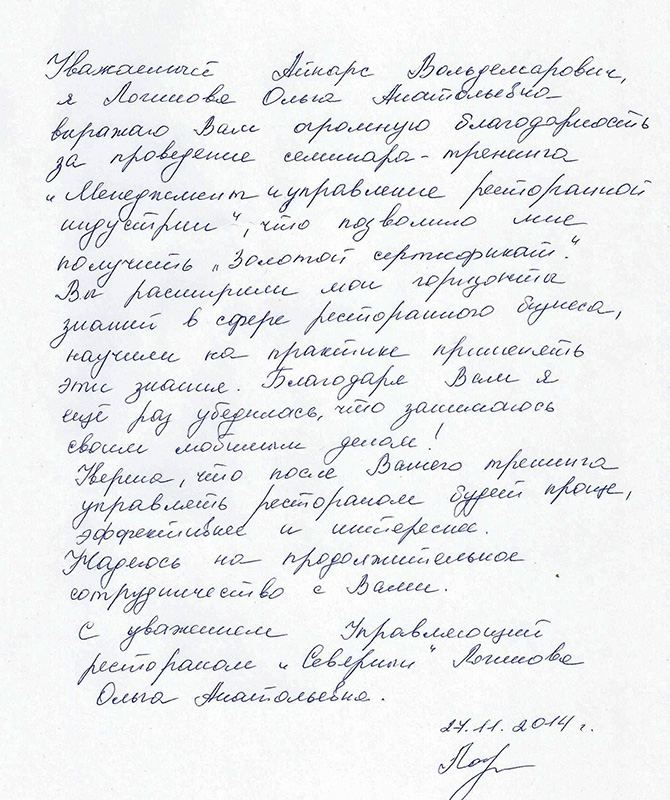 Уважаемый Айнарс Вольдемарович,
я Логинова Ольга Анатольевна
выражаю Вам огромную благодарность
за проведение семинара-тренинга
„Менеджмент и управление ресторанной
индустрии“, что позволило мне
получить „Золотой сертификат“.
Вы расширили мои горизонты
знаний в сфере ресторанного бизнеса,
научили на практике применять
эти знания. Благодаря Вам я
ещё раз убедилась, что занимаюсь
своим любимым делом!
Уверена, что после Вашего тренинга
управлять рестораном будет проще,
эффективнее и интереснее.
Надеюсь на продолжительное
сотрудничество с Вами.
С уважением Управляющий
рестораном „Северный“ Логинова
Ольга Анатольевна.
27.11.2014 г.